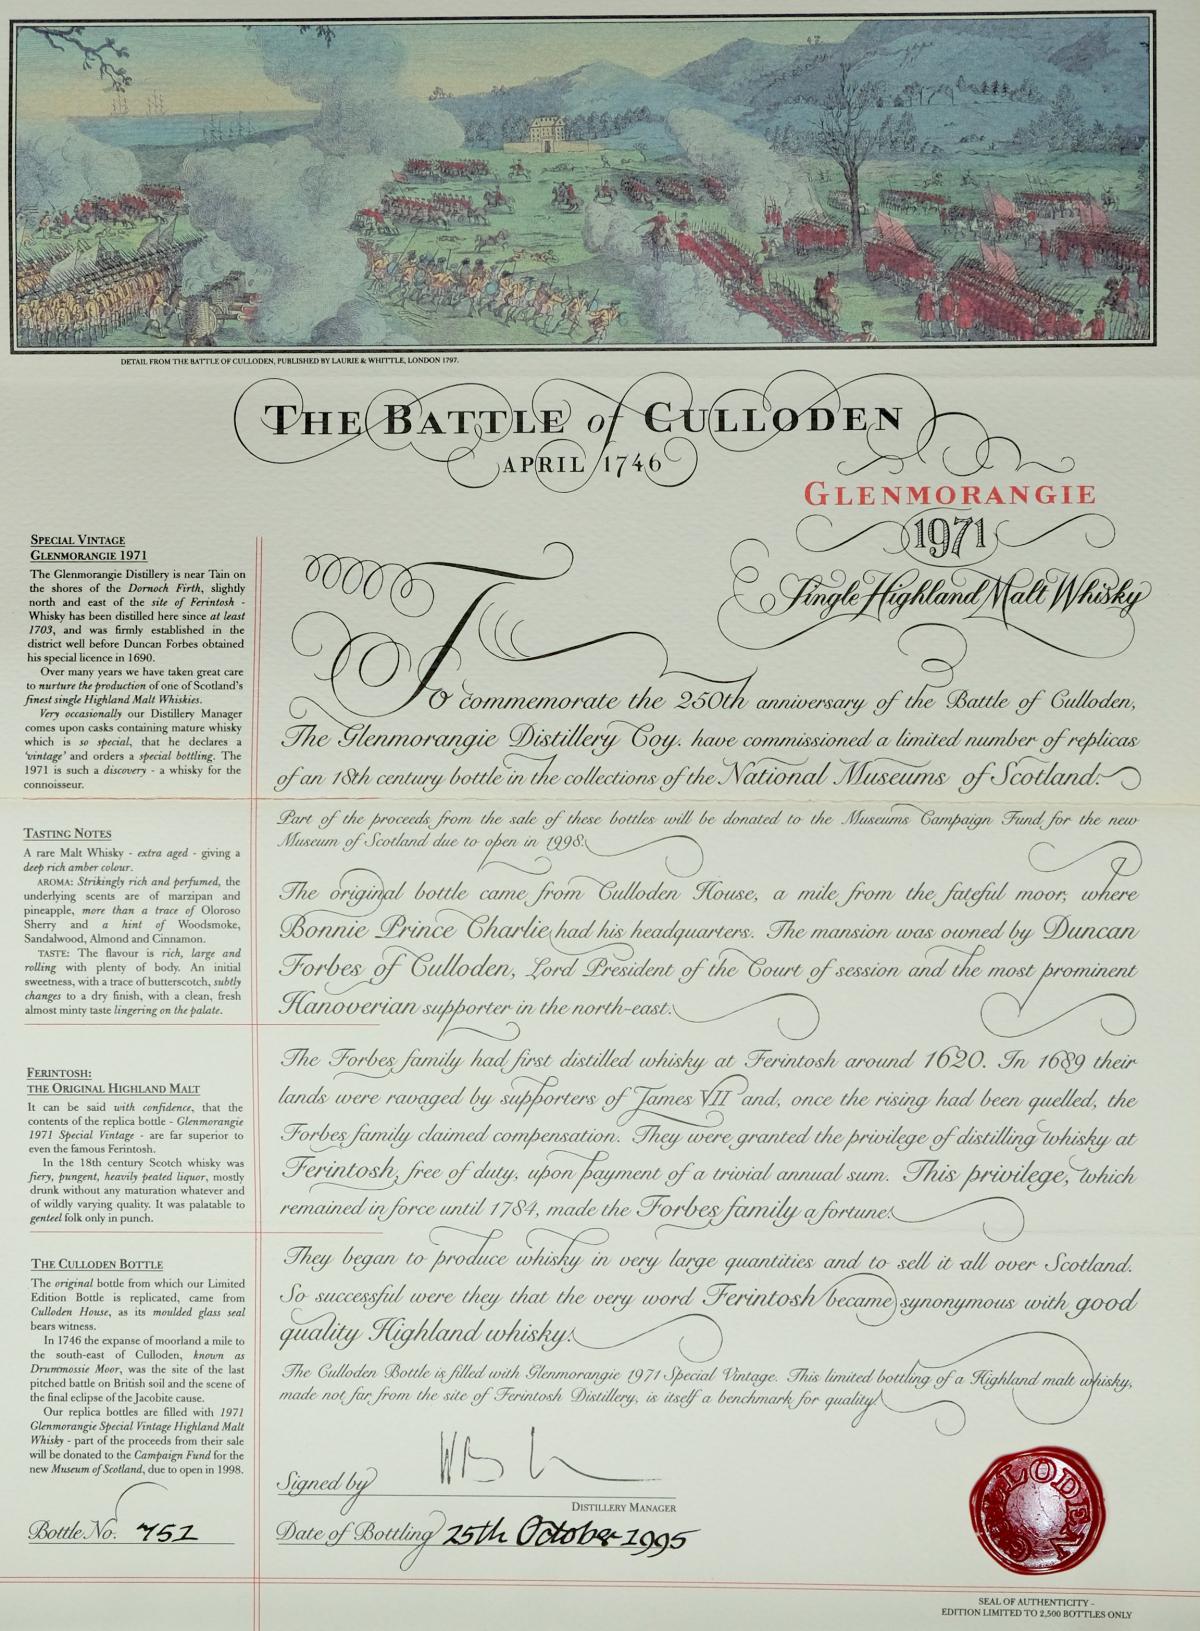 DETAIL FROM THE BATTLE OF CULLODEN, PUBLISHED BY LAURIE & WHITTLE, LONDON 1797.
THE BATTLE of CULLODEN
APRIL 1746
GLENMORANGIE
1971
Single Highland Malt Whisky
SPECIAL VINTAGE
GLENMORANGIE 1971
The Glenmorangie Distillery is near Tain on
the shores of the Dornoch Firth, slightly
north and east of the site of Ferintosh -
Whisky has been distilled here since at least
1703, and was firmly established in the
district well before Duncan Forbes obtained
his special licence in 1690.
Over many years we have taken great care
to nurture the production of one of Scotland's
finest single Highland Malt Whiskies.
Very occasionally our Distillery Manager
comes upon casks containing mature whisky
which is so special, that he declares a
'vintage' and orders a special bottling. The
1971 is such a discovery - a whisky for the
connoisseur.
TASTING NOTES
A rare Malt Whisky - extra aged - giving a
deep rich amber colour.
AROMA: Strikingly rich and perfumed, the
underlying scents are of marzipan and
pineapple, more than a trace of Oloroso
Sherry and a hint of Woodsmoke,
Sandalwood, Almond and Cinnamon.
TASTE: The flavour is rich, large and
rolling with plenty of body. An initial
sweetness, with a trace of butterscotch, subtly
changes to a dry finish, with a clean, fresh
almost minty taste lingering on the palate.
FERINTOSH:
THE ORIGINAL HIGHLAND MALT
It can be said with confidence, that the
contents of the replica bottle - Glenmorangie
1971 Special Vintage - are far superior to
even the famous Ferintosh.
In the 18th century Scotch whisky was
fiery, pungent, heavily peated liquor, mostly
drunk without any maturation whatever and
of wildly varying quality. It was palatable to
genteel folk only in punch.
THE CULLODEN BOTTLE
The original bottle from which our Limited
Edition Bottle is replicated, came from
Culloden House, as its moulded glass seal
bears witness.
In 1746 the expanse of moorland a mile to
the south-east of Culloden, known as
Drummossie Moor, was the site of the last
pitched battle on British soil and the scene of
the final eclipse of the Jacobite cause.
Our replica bottles are filled with 1971
Glenmorangie Special Vintage Highland Malt
Whisky - part of the proceeds from their sale
will be donated to the Campaign Fund for the
new Museum of Scotland, due to open in 1998.
Bottle No. 751
To commemorate the 250th anniversary of the Battle of Culloden,
The Glenmorangie Distillery Coy. have commissioned a limited number of replicas
of an 18th century bottle in the collections of the National Museums of Scotland.
Part of the proceeds from the sale of these bottles will be donated to the Museums Campaign Fund for the new
Museum of Scotland due to open in 1998.
The original bottle came from Culloden House, a mile from the fateful moor, where
Bonnie Prince Charlie had his headquarters. The mansion was owned by Duncan
Forbes of Culloden, Lord President of the Court of session and the most prominent
Hanoverian supporter in the north-east.
The Forbes family had first distilled whisky at Ferintosh around 1620. In 1689 their
lands were ravaged by supporters of James VII and, once the rising had been quelled, the
Forbes family claimed compensation. They were granted the privilege of distilling whisky at
Ferintosh, free of duty, upon payment of a trivial annual sum. This privilege, which
remained in force until 1784, made the Forbes family a fortune.
They began to produce whisky in very large quantities and to sell it all over Scotland.
So successful were they that the very word Ferintosh became synonymous with good
quality Highland whisky.
The Culloden Bottle is filled with Glenmorangie 1971 Special Vintage. This limited bottling of a Highland malt whisky,
made not far from the site of Ferintosh Distillery, is itself a benchmark for quality.
Signed by
DISTILLERY MANAGER
Date of Bottling 25th October 1995
CULLODEN
SEAL OF AUTHENTICITY -
EDITION LIMITED TO 2,500 BOTTLES ONLY